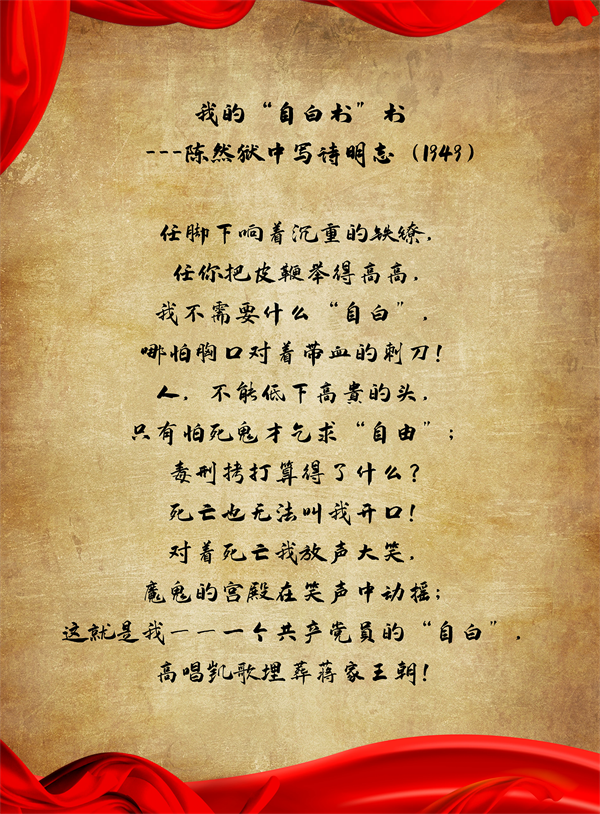 我的“自白书”书
---陈然狱中写诗明志（1949）
任脚下响着沉重的铁镣，
任你把皮鞭举得高高，
我不需要什么“自白”，
哪怕胸口对着带血的刺刀！
人，不能低下高贵的头，
只有怕死鬼才乞求“自由”；
毒刑拷打算得了什么？
死亡也无法叫我开口！
对着死亡我放声大笑，
魔鬼的宫殿在笑声中动摇；
这就是我一一一个共产党员的“自白”，
高唱凯歌埋葬蒋家王朝！